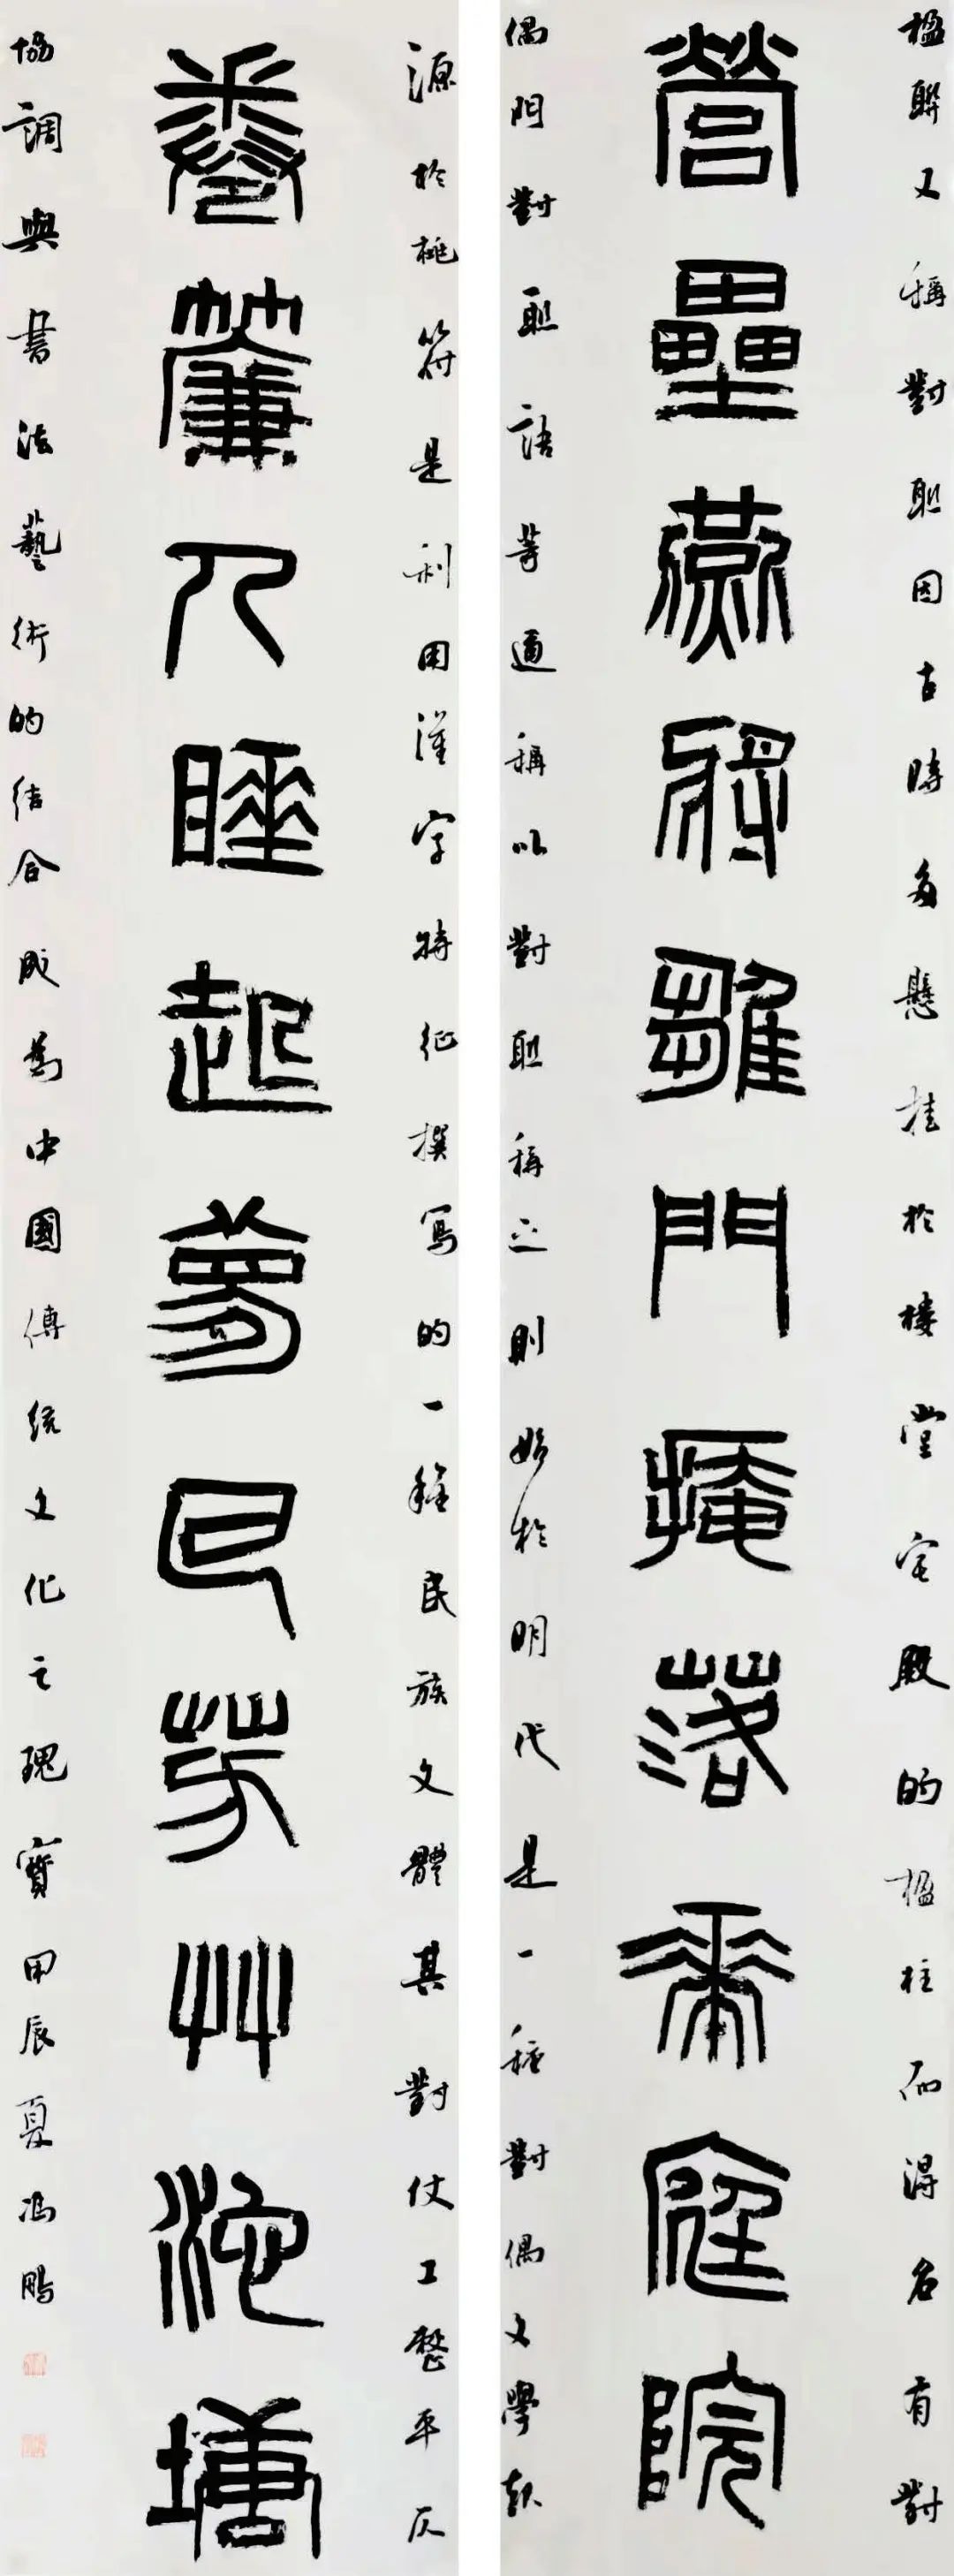 楹聯又稱對聯因古時多懸挂於樓堂宅殿的楹柱而得名有對
營壘燕將雛門掩落花庭院
偶門對聯語等通稱以對聯稱之則始於明代是一種對偶文學起
源於桃符是利用漢字特征撰寫的一種民族文體其對仗工整平仄
卷簾人睡起夢回芳草池塘
協調與書法藝術的結合成為中國傳統文化之瑰寶甲辰夏馮鵬